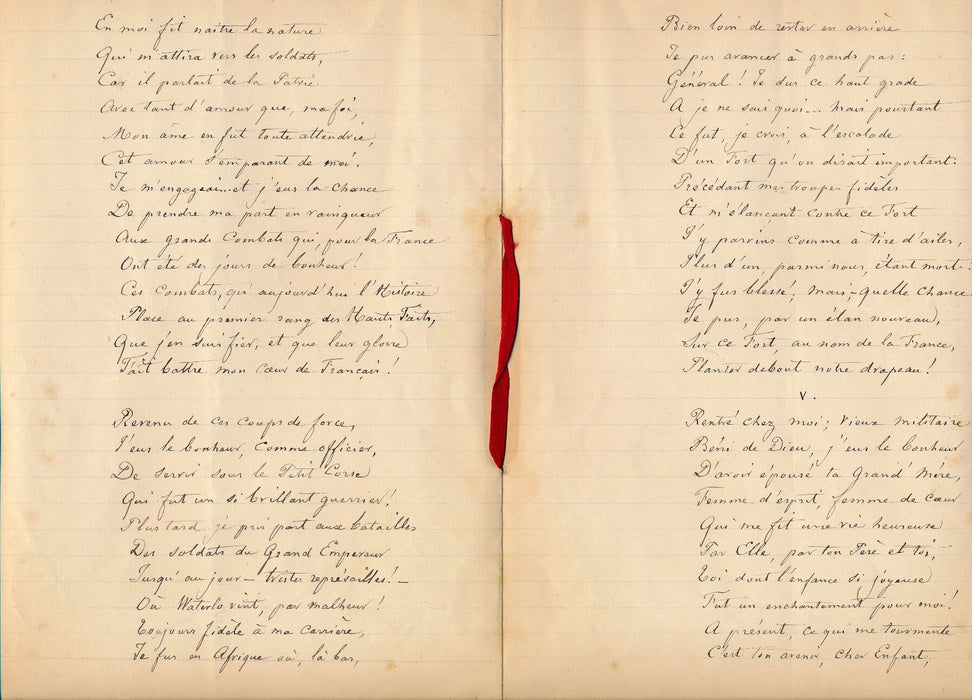 En moi fit naitre la nature
Qui m'attira vers les soldats,
Car il parlait de la Patrie
Avec tant d'amour que, ma foi,
Mon âme en fut toute attendrie,
Cet amour s'emparant de moi.
Je m'engageai... et j'eus la chance
De prendre ma part en vainqueur
Aux grands Combats qui, pour la France
Ont été des jours de bonheur!
Ces Combats, qu'aujourd'hui l'Histoire
Place au premier rang des Hauts Faits,
Que j'en suis fier, et que leur gloire
Fait battre mon cœur de Français!
Revenu de ces coups de force,
J'eus le bonheur, comme officier,
De servir sous le Petit Corse
Qui fut un si brillant guerrier!
Plus tard, je pris part aux batailles
Des soldats du Grand Empereur
Jusqu'au jour — tristes représailles! —
Où Waterlo vint, par malheur!
Toujours fidèle à ma carrière,
Je fus en Afrique où, là bas,
Bien loin de rester en arrière
Je pus avancer à grands pas:
Général! Je dus ce haut grade
A je ne sais quoi... mais pourtant
Ce fut, je crois, à l'escalade
D'un Fort qu'on disait important:
Précédant mes troupes fidèles
Et m'élançant contre ce Fort
J'y parvins comme à tire d'ailes,
Plus d'un, parmi nous, étant mort:
J'y fus blessé; mais, quelle chance
Je pus, par un élan nouveau,
Sur ce Fort, au nom de la France,
Planter debout notre drapeau!
V.
Rentré chez moi; vieux militaire
Béni de Dieu, j'eus le bonheur
D'avoir épousé ta Grand' Mère,
Femme d'esprit, femme de cœur
Qui me fit une vie heureuse
Par Elle, par ton Père et toi,
Toi dont l'enfance si joyeuse
Fut un enchantement pour moi!
A présent, ce qui me tourmente
C'est ton avenir, cher Enfant,